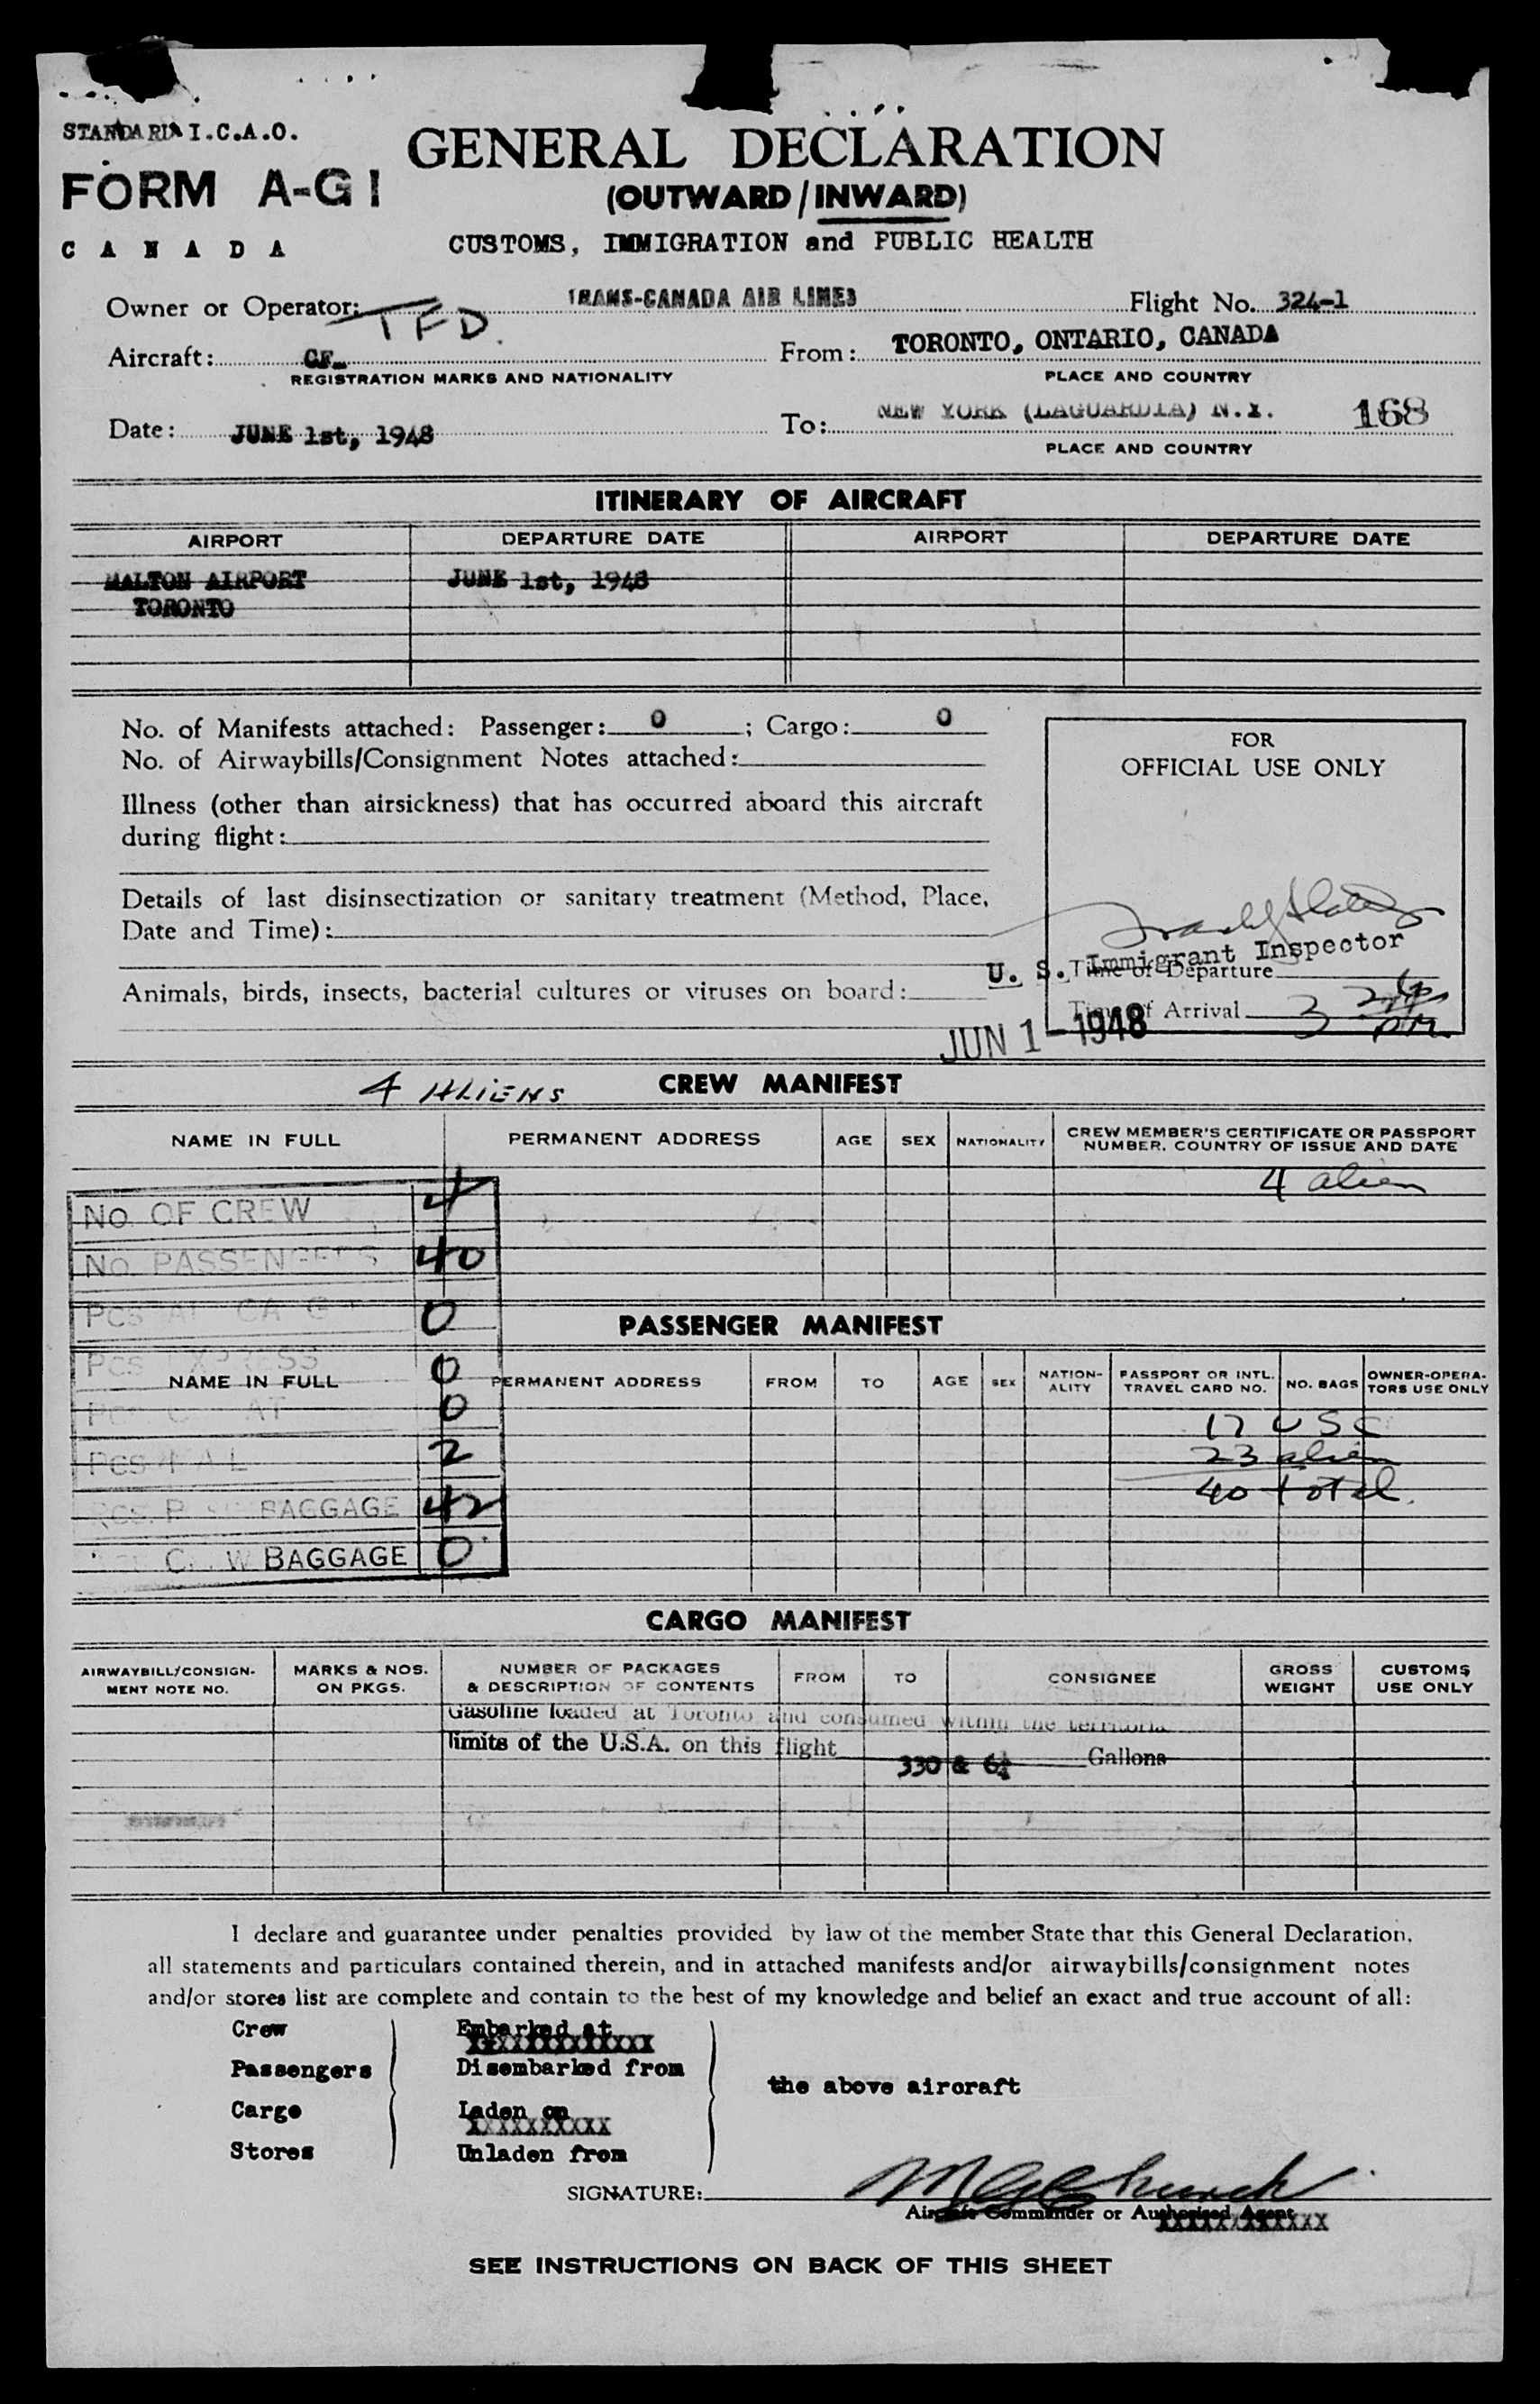 STANDARD I.C.A.O.
FORM A-G1
CANADA
GENERAL DECLARATION
(OUTWARD/INWARD)
CUSTOMS, IMMIGRATION and PUBLIC HEALTH
Owner or Operator: TRANS-CANADA AIR LINES Flight No. 324-1
TFD
Aircraft: CF- From: TORONTO, ONTARIO, CANADA
REGISTRATION MARKS AND NATIONALITY PLACE AND COUNTRY
Date: JUNE 1st, 1948 To: NEW YORK (LAGUARDIA) N.Y. 168
PLACE AND COUNTRY
ITINERARY OF AIRCRAFT
AIRPORT DEPARTURE DATE AIRPORT DEPARTURE DATE
MALTON AIRPORT JUNE 1st, 1948
TORONTO
No. of Manifests attached: Passenger: 0 ; Cargo: 0
No. of Airwaybills/Consignment Notes attached:
Illness (other than airsickness) that has occurred aboard this aircraft
during flight:
Details of last disinsectization or sanitary treatment (Method, Place,
Date and Time):
Animals, birds, insects, bacterial cultures or viruses on board:
FOR
OFFICIAL USE ONLY
U. S. Immigrant Inspector
Time of Departure
Time of Arrival 3 PM
JUN 1 - 1948
4 ALIENS CREW MANIFEST
NAME IN FULL PERMANENT ADDRESS AGE SEX NATIONALITY CREW MEMBER'S CERTIFICATE OR PASSPORT
NUMBER, COUNTRY OF ISSUE AND DATE
4 alien
NO. OF CREW 4
NO. PASSENGERS 40
PCS 0
PASSENGER MANIFEST
PCS EXPRESS 0
NAME IN FULL PERMANENT ADDRESS FROM TO AGE SEX NATION-
ALITY PASSPORT OR INTL.
TRAVEL CARD NO. NO. BAGS OWNER-OPERA-
TORS USE ONLY
0
17 USC
PCS MAIL 2
23 alien
40 total.
BAGGAGE 42
CREW BAGGAGE 0
CARGO MANIFEST
AIRWAYBILL/CONSIGN-
MENT NOTE NO. MARKS & NOS.
ON PKGS. NUMBER OF PACKAGES
& DESCRIPTION OF CONTENTS FROM TO CONSIGNEE GROSS
WEIGHT CUSTOMS
USE ONLY
Gasoline loaded at Toronto and consumed within the territorial
limits of the U.S.A. on this flight 330 & 6¼ Gallons
I declare and guarantee under penalties provided by law of the member State that this General Declaration,
all statements and particulars contained therein, and in attached manifests and/or airwaybills/consignment notes
and/or stores list are complete and contain to the best of my knowledge and belief an exact and true account of all:
Crew Embarked at
Passengers Disembarked from
the above aircraft
Cargo Laden on
Stores Unladen from
SIGNATURE: M G Church
Aircraft Commander or Authorised Agent
SEE INSTRUCTIONS ON BACK OF THIS SHEET